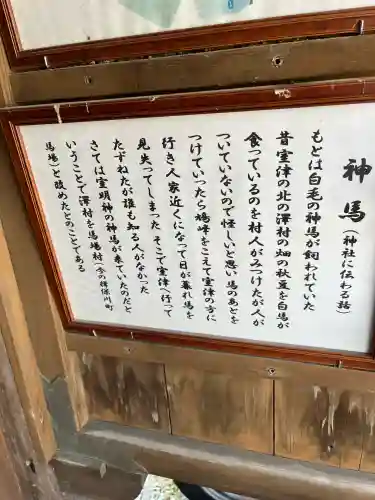 神馬（神社に伝わる話）
もとは白毛の神馬が飼われていた
昔室津の北の澤村の畑の秋豆を白馬が
食っているのを村人がみつけたが人が
ついていないので怪しいと思い馬のあとを
つけていったら鳩峰をこえて室津の方に
行き人家近くになって日が暮れ馬を
見失ってしまった そこで室津へ行って
たずねたが誰も知る人がなかった
さては室明神の神馬が来ていたのだと
いうことで澤村を馬場村（今の揖保川町
馬場）と改めたとのことである